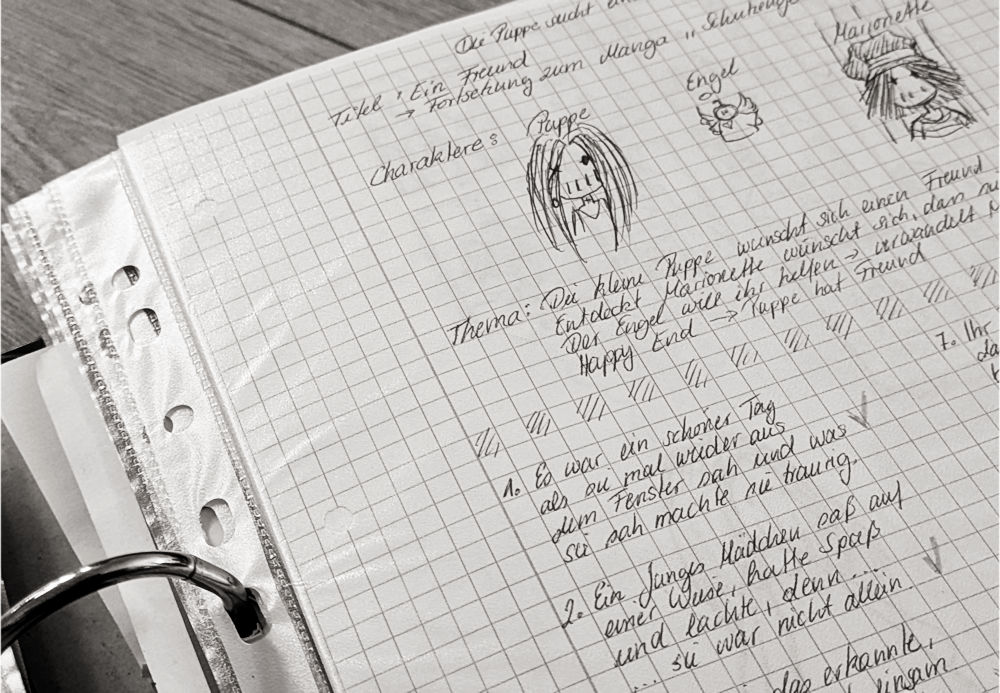 Die Puppe sucht
Titel: Ein Freund
→ Fortsetzung zum Manga "Schutzenge
Charaktere:
Puppe
Engel
Marionette
Thema: Die kleine Puppe wünscht sich einen Freund
Entdeckt Marionette wünscht sich, dass
Der Engel will ihr helfen → verwandelt
Happy End → Puppe hat Freund
1. Es war ein schöner Tag
als sie mal wieder aus
dem Fenster sah und was
sie sah machte sie traurig.
2. Ein junges Mädchen saß auf
einer Wiese, hatte Spaß
und lachte, denn ...
... sie war nicht allein
das erkannte,
einsam
7. Ihr
da